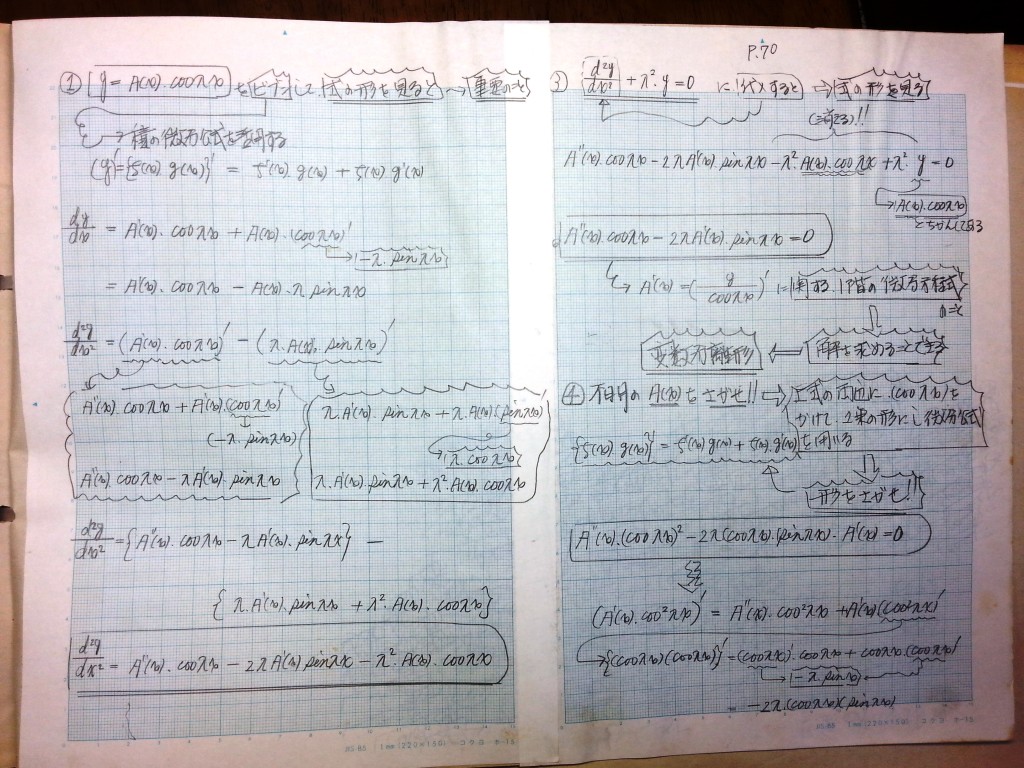 ① y = A(x)・cosλx をビブンして 式の形を見ると → 重要のこと
→ 積の微分公式を説明する
(y)' = {f(x) g(x)}' = f'(x) g(x) + f(x) g'(x)
dy/dx = A'(x)・cosλx + A(x)・(cosλx)'
→ -λ・sinλx
= A'(x)・cosλx - A(x)・λ sinλx
d²y/dx² = (A'(x)・cosλx)' - (λ・A(x)・sinλx)'
A''(x)・cosλx + A'(x)・(cosλx)'
(-λ・sinλx)
A''(x)・cosλx - λA'(x)・sinλx
λ・A'(x)・sinλx + λ・A(x)(sinλx)'
λ・cosλx
λ・A'(x)・sinλx + λ²A(x)・cosλx
d²y/dx² = {A''(x)・cosλx - λA'(x)・sinλx} —
{λ・A'(x)・sinλx + λ²・A(x)・cosλx}
d²y/dx² = A''(x)・cosλx - 2λA'(x) sinλx - λ²・A(x)・cosλx
P.70
③ d²y/dx² + λ²・y = 0 に代入すると → 式の形を見る
(消える)!!
A''(x)・cosλx - 2λA'(x)・sinλx - λ²・A(x)・cosλx + λ²・y = 0
→ A(x)・cosλx
A''(x)・cosλx - 2λA'(x)・sinλx = 0
→ A'(x) = (y/cosλx)' に関する 1階の微分方程式
変数分離形 ⇐ 解を求めることできる
④ 不明の A(x) をさがせ!! ⇒ 上式の両辺に (cosλx) を
かけて、積の形にし微分公式
{f(x) g(x)}' = f'(x) g(x) + f(x)・g'(x) を用いる
形をさがせ!!
A''(x)・(cosλx)² - 2λ(cosλx)・(sinλx)・A'(x) = 0
(A'(x)・cos²λx)' = A''(x)・cos²λx + A'(x)(cos²λx)'
→ {(cosλx)(cosλx)}' = (cosλx)'・cosλx + cosλx・(cosλx)'
→ -λ・sinλx
= -2λ・(cosλx)(sinλx)
1mm(220×150)
コクヨ ホ-18